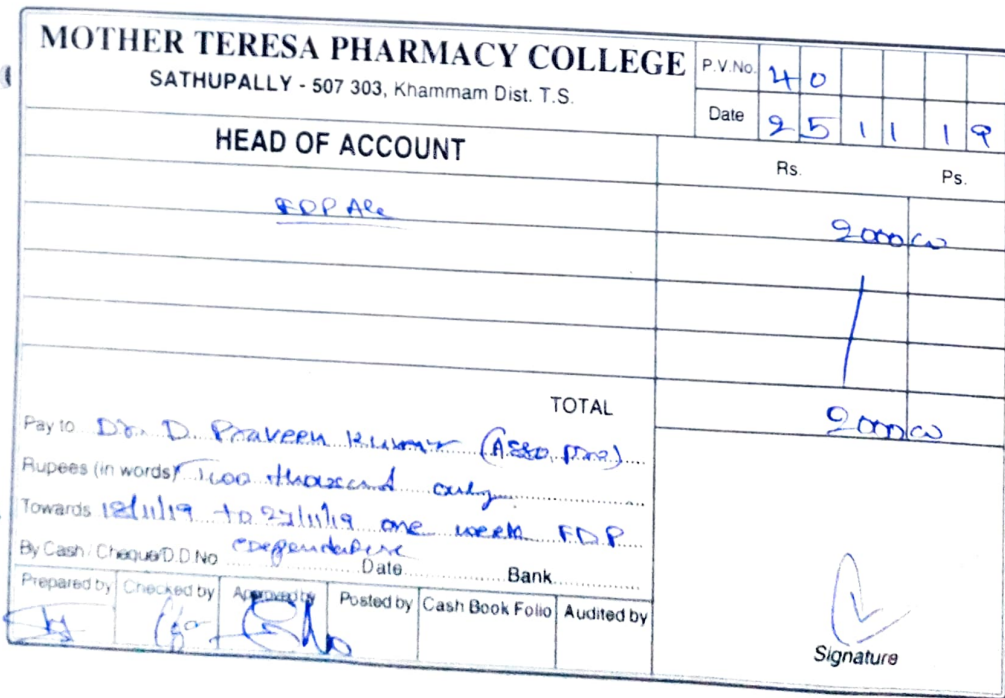 MOTHER TERESA PHARMACY COLLEGE
SATHUPALLY - 507 303, Khammam Dist. T.S.
P.V.No. 40
Date 25 11 19
HEAD OF ACCOUNT Rs. Ps.
FDP A/c 2000 00
TOTAL 2000 00
Pay to Dr. D. Praveen Kumar (Asso. prof)
Rupees (in words) Two thousand only
Towards 18/11/19 to 27/11/19 one week FDP
By Cash / Cheque/D.D.No Date Bank
Prepared by Checked by Approved by Posted by Cash Book Folio Audited by
Signature